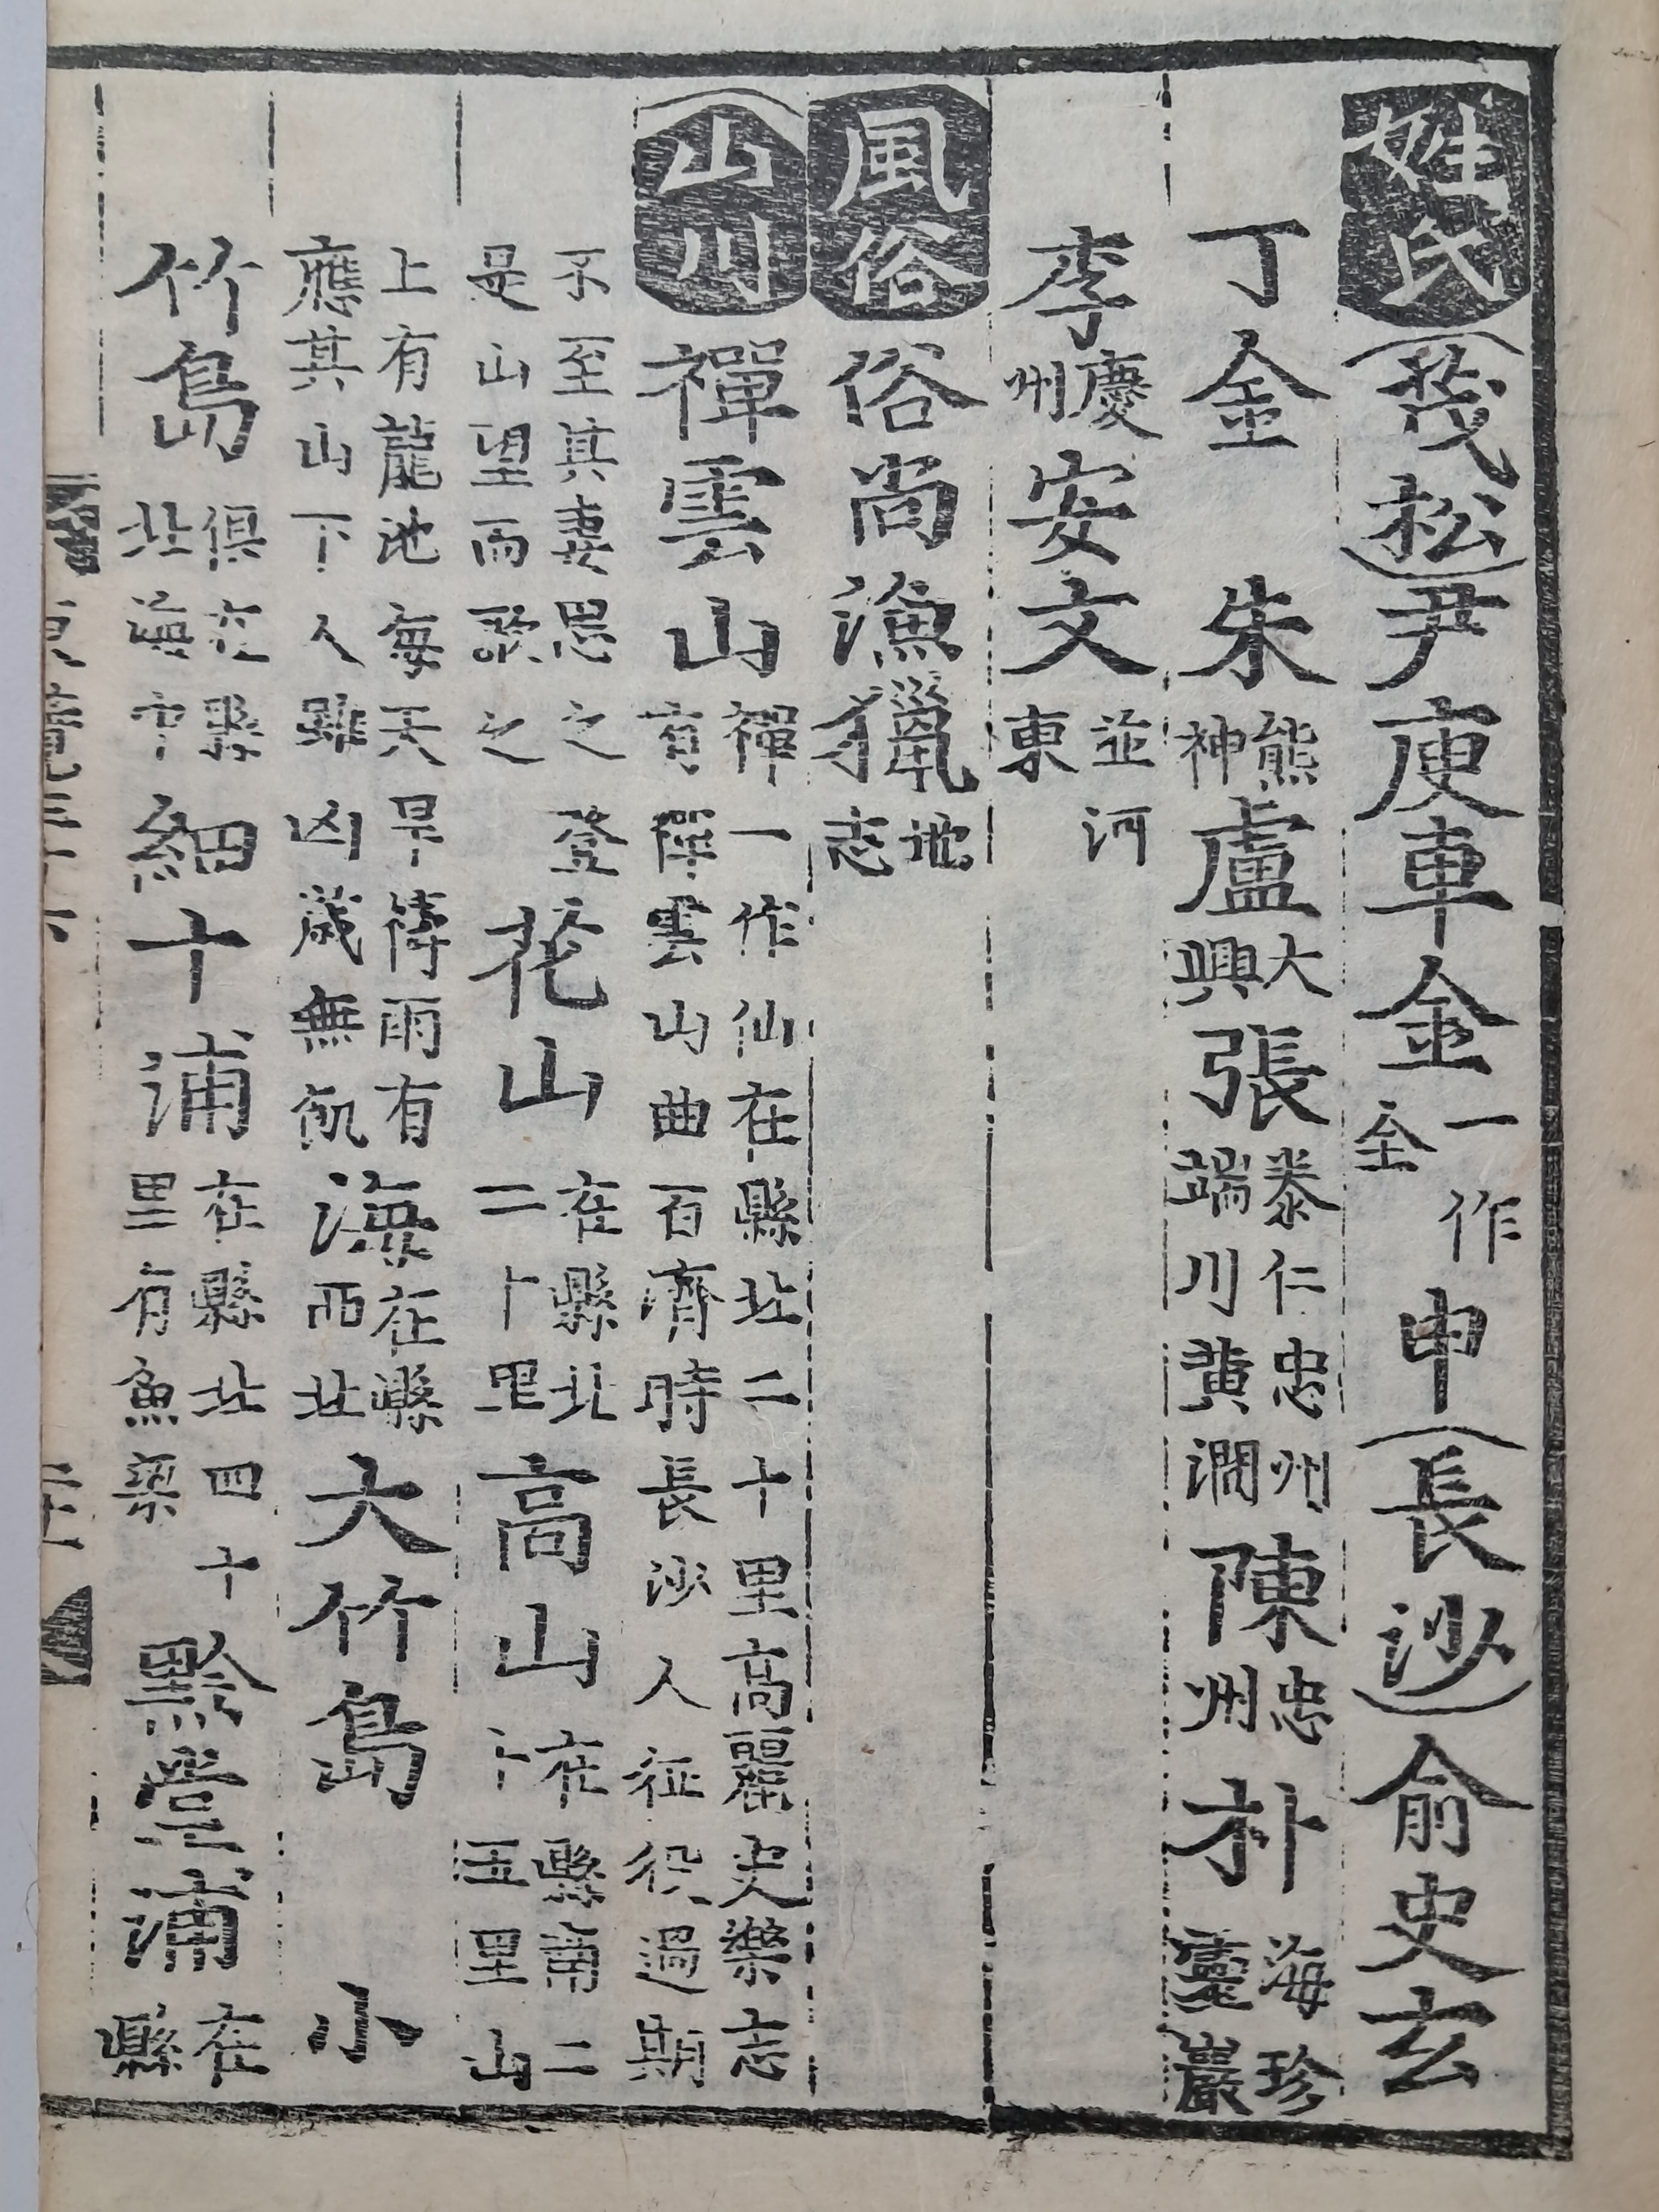 姓氏(茂松)尹庾車金一作全申(長沙)俞史玄
丁金 朱熊神盧大興張泰仁忠州端川黃澗陳忠州朴海珍靈巖
李慶州安文並河東
風俗俗尚漁獵地志
山川禪雲山禪一作仙在縣北二十里高麗史樂志有禪雲山曲百濟時長沙人征役過期
不至其妻思之登是山望而歌之花山在縣北二十里高山在縣南二十五里山
上有龍池每天旱禱雨有應其山下人雖凶歲無飢海在縣西北大竹島 小
竹島俱在縣北海中細十浦在縣北四十里有魚梁黔堂浦在縣